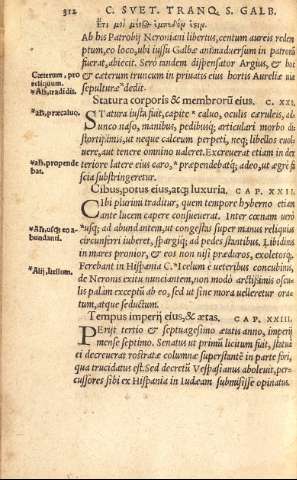 312 C. SVET. TRANQ. S. GALB.
Ἔτι μοὶ μένος ἔμπεδόν ἐστιν.
Ab his Patrobij Neroniani libertus, centum aureis redem
ptum, eo loco, ubi iussu Galbæ animaduersum in patronũ
fuerat, abiecit. Sero tandem dispensator Argius, & hoc
Cæterum, pro reliquum.
& cæterum truncum in priuatis eius hortis Aurelia uia
*Als, tradidit.
sepulturæ *dedit.
Statura corporis & membrorũ eius. C. XXI.
*als, præcaluo.
STatura iusta fuit, capite *caluo, oculis caruleis, ad
unco naso, manibus, pedibusq; articulari morbo di
stortissimis, ut neque calceum perpeti, neq; libellos euol
uere, aut tenere omnino ualeret. Excreuerat etiam in dex
*als, propendebat.
teriore latere eius caro, *præpendebatq; adeo, ut ægrè fa
scia substringeretur.
Cibus, potus eius, atq; luxuria. CAP. XXII.
CIbi plurimi traditur, quem tempore hyberno etiam
ante lucem capere consueuerat. Inter cœnam uerò
*als, usq; eo abundanti.
*usq; ad abundantem, ut congestas super manus reliquias
circunferri iuberet, spargiq; ad pedes stantibus. Libidinis
in mares pronior, & eos non nisi præduros, exoletosq;
*Als, Iullum.
Ferebant in Hispania C. *Icelum è ueteribus concubinis,
de Neronis exitu nunciantem, non modò arctissimis oscu
lis palam exceptũ ab eo, sed ut sine mora uelleretur ora
tum, atque seductum.
Tempus imperij eius, & ætas. CAP. XXIII.
PErijt tertio & septuagesimo ætatis anno, imperij
mense septimo. Senatus ut primũ licitum fuit, statuã
ei decreuerat rostratæ columnæ superstantẽ in parte fori,
qua trucidatus est. Sed decretũ Vespasianus aboleuit, per-
cussores sibi ex Hispania in Iudæam submisisse opinatus.